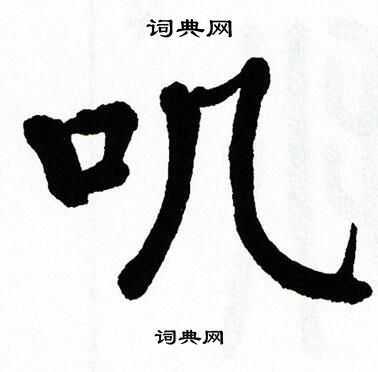 词典网
叽
词典网